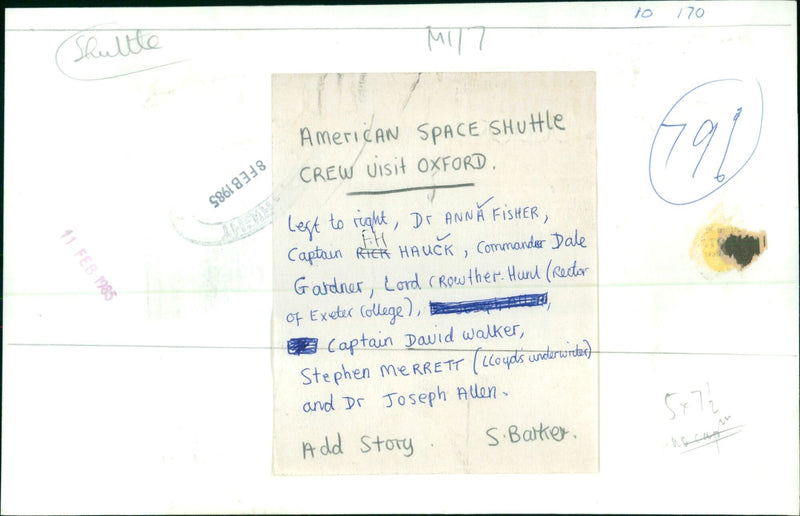 10 170
Shuttle
M1/7
AMERICAN SPACE SHUTTLE
CREW visit OXFORD.
8 FEB 1985
791
Left to right, Dr ANNA FISHER,
F.H
Captain RICK HAUCK, Commander Dale
11 FEB 1985
Gardner, Lord Crowther-Hunt (Rector
of Exeter College),
Captain David Walker,
Stephen MERRETT (Lloyds underwriter)
and Dr Joseph Allen.
5x7½
Add Story. S. Barker.